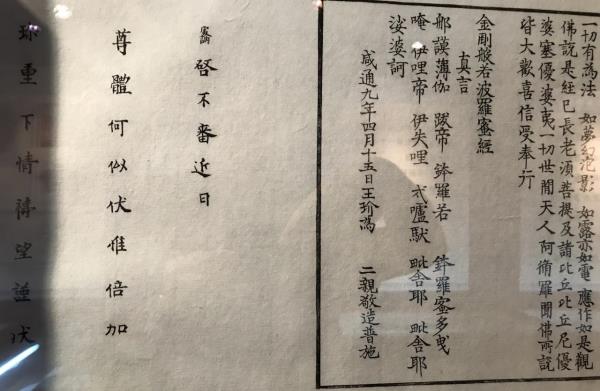 一切有為法 如夢幻泡影 如露亦如電 應作如是觀
佛說是經已長老須菩提及諸比丘比丘尼優
婆塞優婆夷一切世閒天人阿脩羅聞佛所說
皆大歡喜信受奉行
金剛般若波羅蜜經
真言
那謨薄伽 跋帝 鉢羅若 鉢羅蜜多曵
唵 伊哩帝 伊失哩 式嚧馱 毗舍耶 毗舍耶
娑婆訶
咸通九年四月十五日王玠為 二親敬造普施
啓不審近日
尊體何似伏惟倍加
珎重下情禱望謹伏